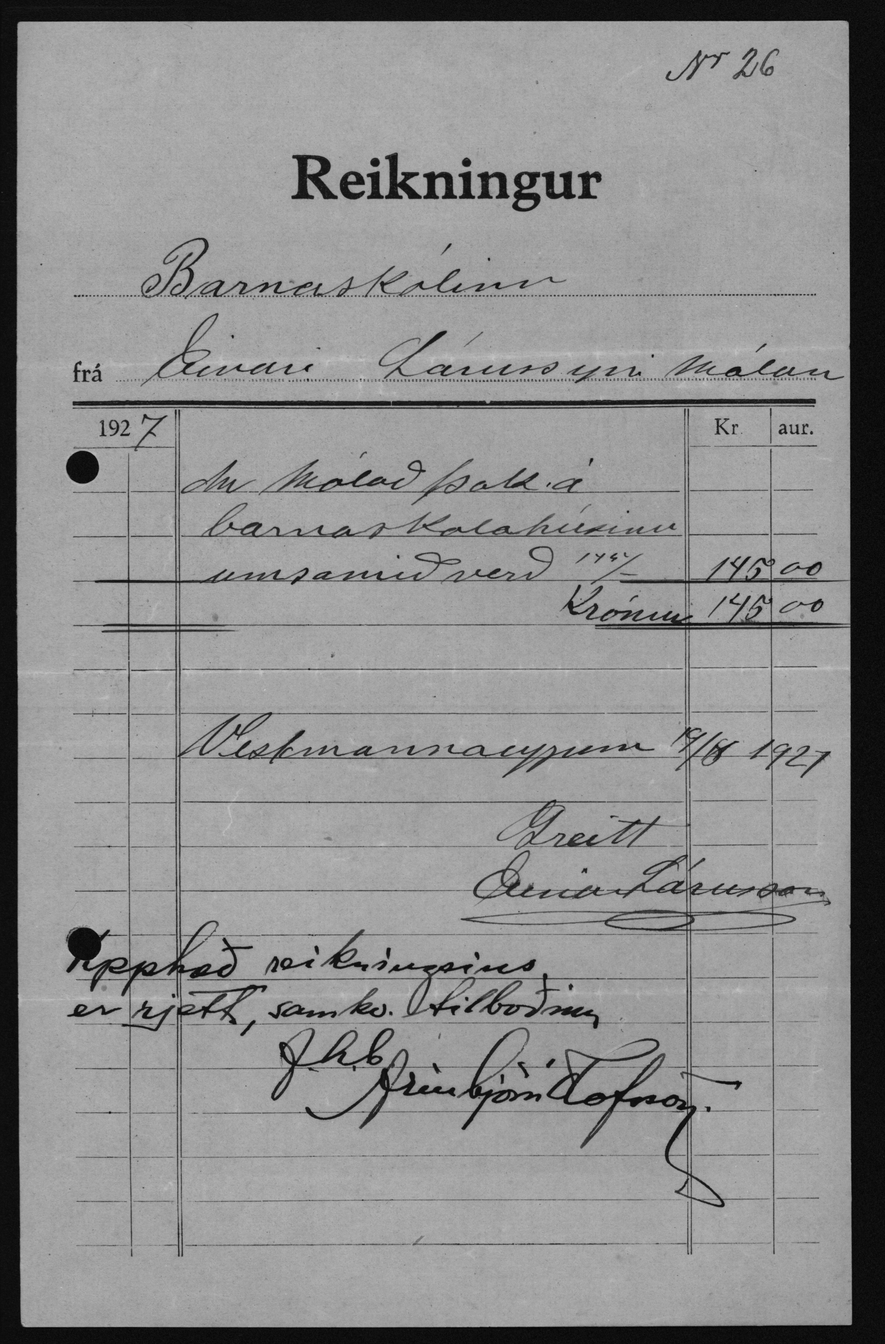 Nr 26
Reikningur
Barnaskólinn
frá Einari Lárussyni Málara
1927 Kr. aur.
Málað þak á
barnaskolahúsinu
umsamið verð 145/- 145 00
Krónur 145 00
Vestmannaeyjum 19/8 1927
Greitt
Einar Lárusson
Upphæð reikningsins
er rjett, samkv. tilboðinu